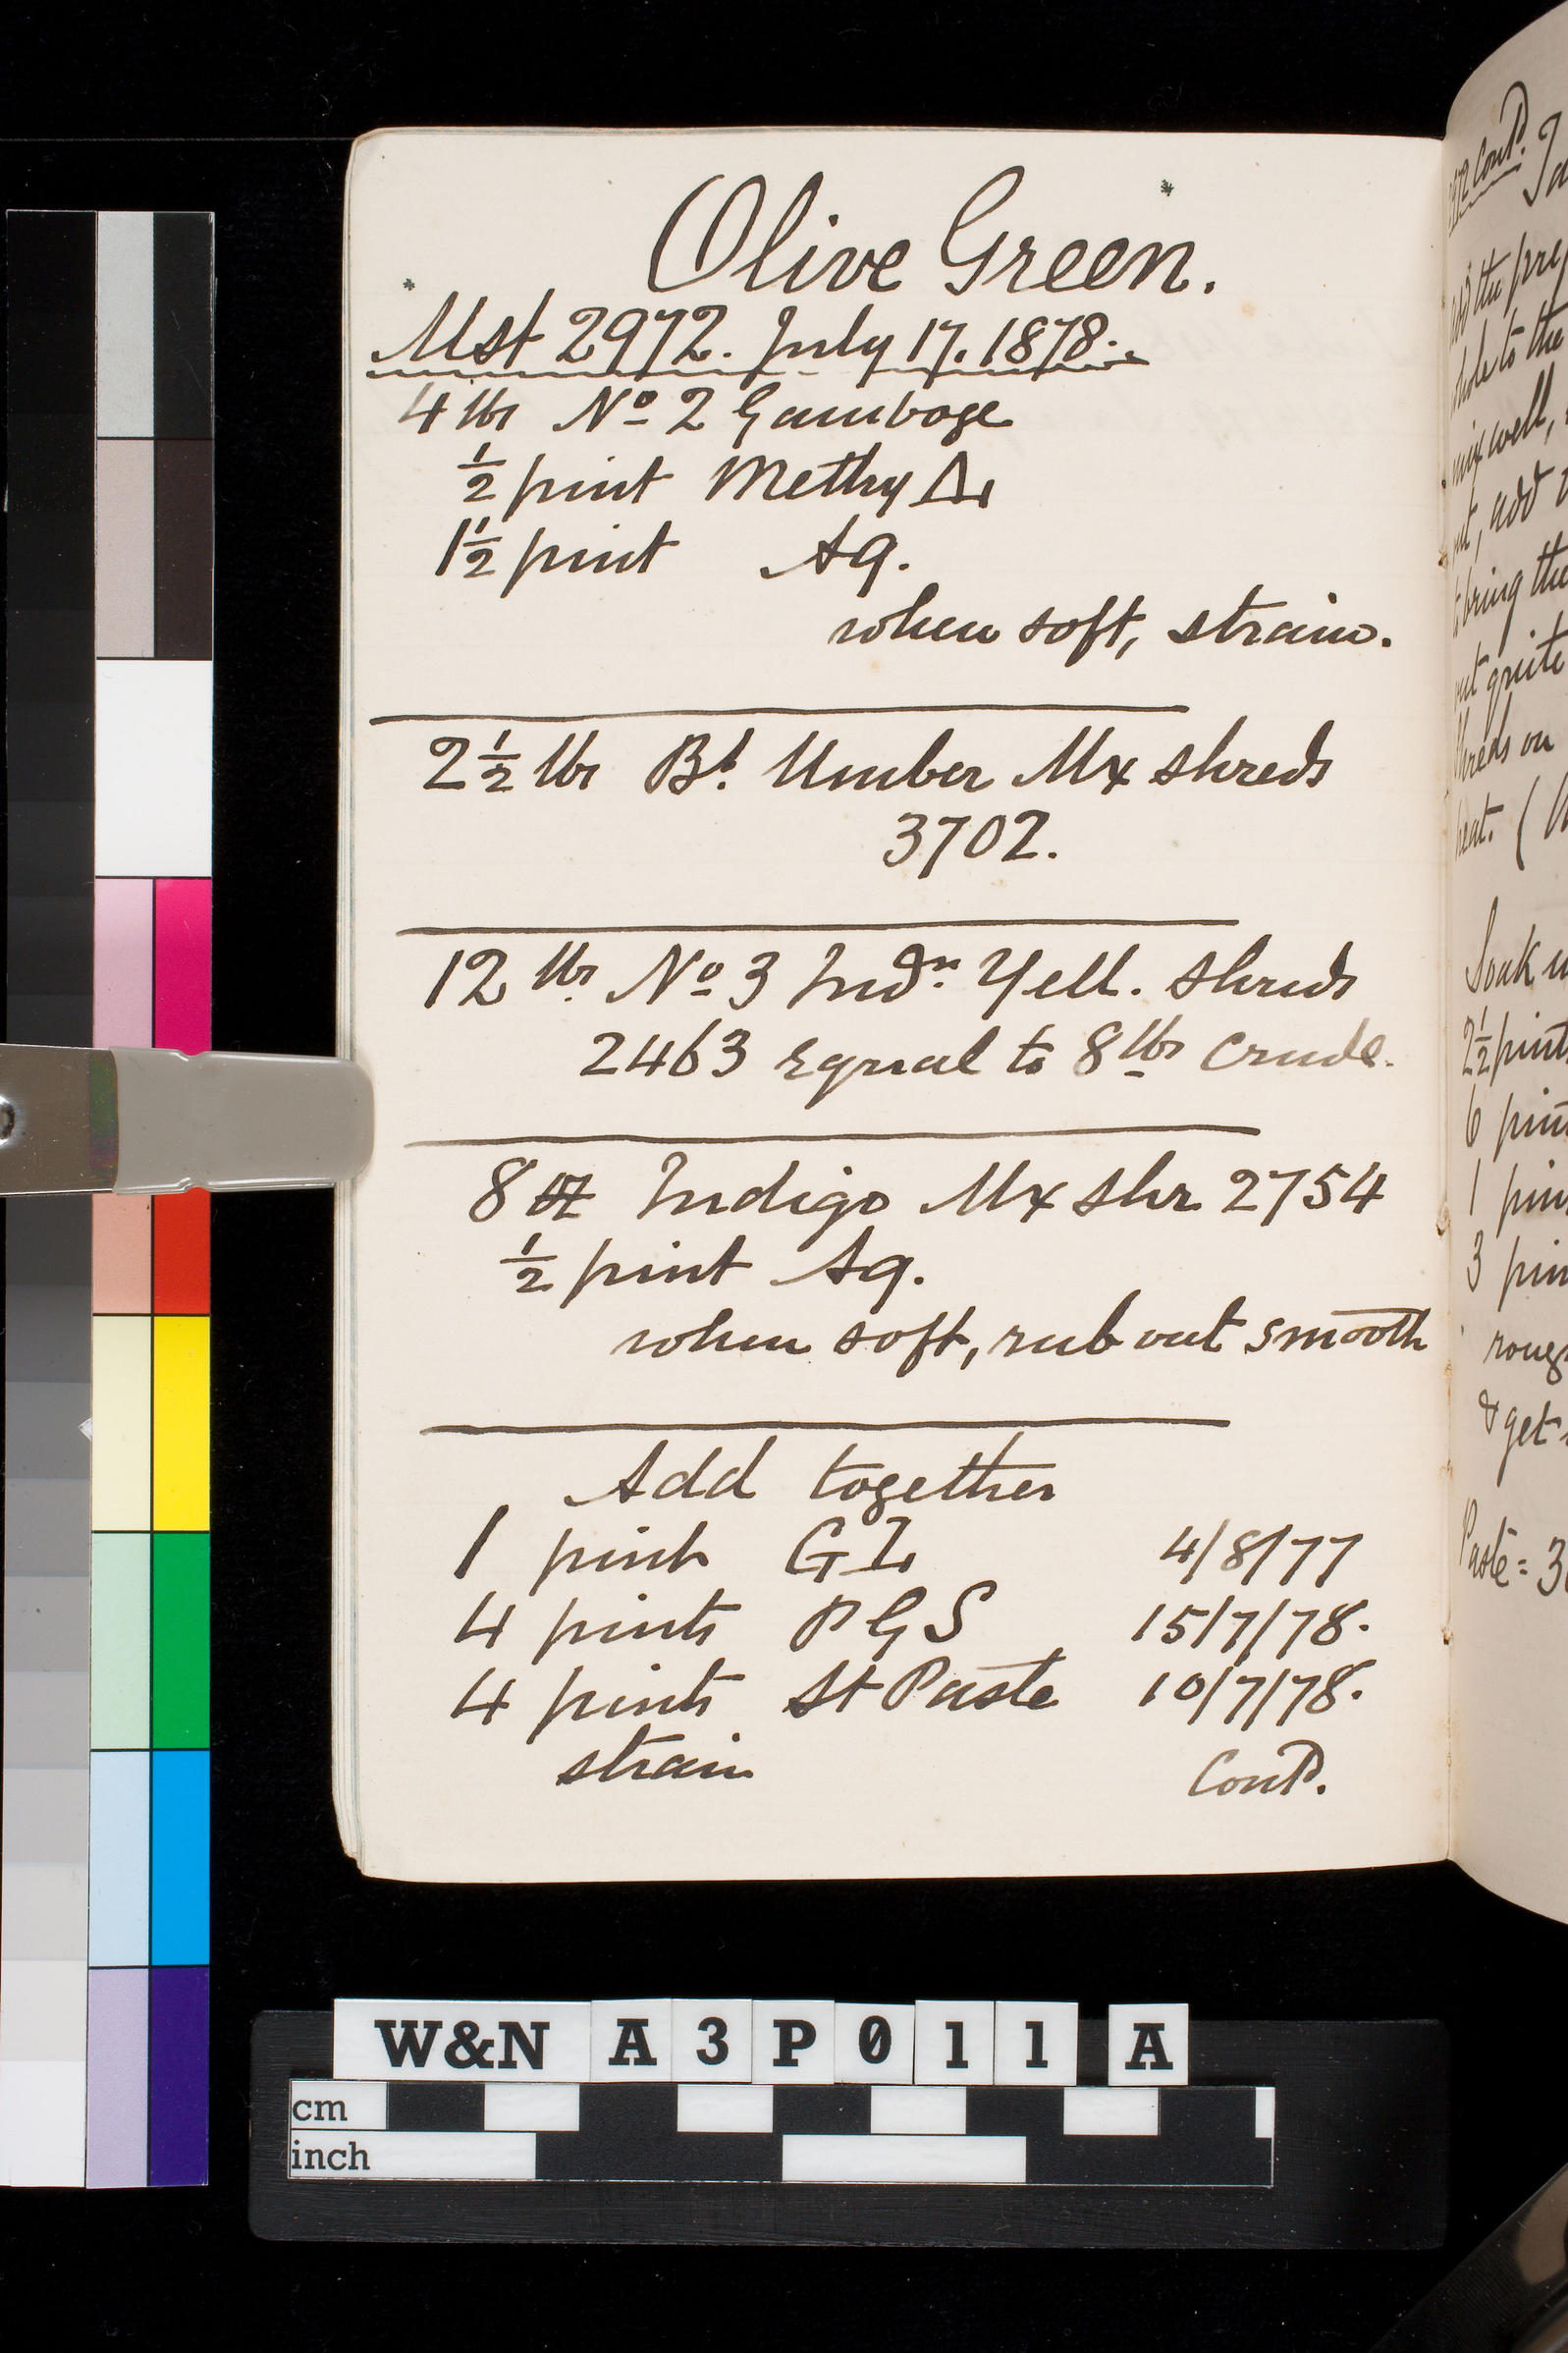 Olive Green.
Mst 2972. July 17. 1878.
4 lbs No 2 Gamboge
½ pint Methy
1½ pint Aq.
when soft, strain.
2½ lbs Bt. Umber Mx shreds
3702.
12 lbs. No 3 Indn. Yell. shreds
2463 equal to 8 lbs crude.
8 oz Indigo Mx shr 2754
½ pint Aq.
when soft, rub out smooth
Add together
1 pint G 4/8/77
4 pints P G S 15/7/78.
4 pints St Paste 10/7/78.
strain
Contd.
Contd.
add the
to the
mix well,
add
bring the
quite
shreds on
heat. (
Soak
2½ pint
6
1
3
& get
Paste = 3
W&N A 3 P 0 1 1 A
cm
inch